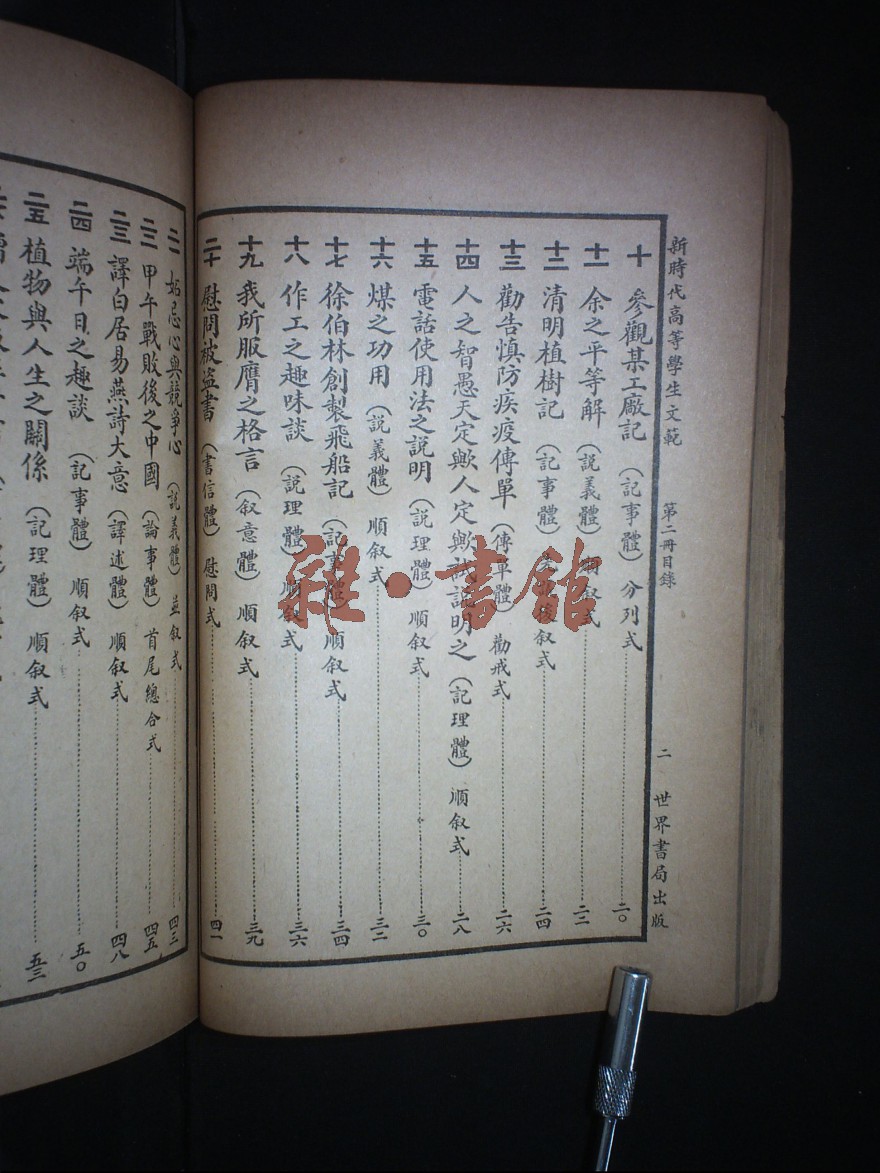 新時代高等學生文範 第二冊目錄 二 世界書局出版
十 參觀某工廠記 (記事體) 分列式 二〇
十一 余之平等解 (說義體) 順叙式 二二
十二 清明植樹記 (記事體) 叙式 二四
十三 勸告慎防疾疫傳單 (傳單體) 勸戒式 二六
十四 人之智愚天定歟人定歟試說明之 (記理體) 順叙式 二八
十五 電話使用法之說明 (說理體) 順叙式 三〇
十六 煤之功用 (說義體) 順叙式 三二
十七 徐伯林創製飛船記 (記事體) 順叙式 三四
十八 作工之趣味談 (說理體) 順叙式 三六
十九 我所服膺之格言 (叙意體) 順叙式 三九
二十 慰問被盜書 (書信體) 慰問式 四一
二一 妬忌心與競爭心 (說義體) 並叙式 四三
二二 甲午戰敗後之中國 (論事體) 首尾總合式 四五
二三 譯白居易燕詩大意 (譯述體) 順叙式 四八
二四 端午日之趣談 (記事體) 順叙式 五〇
二五 植物與人生之關係 (記理體) 順叙式 五三
雜·書館